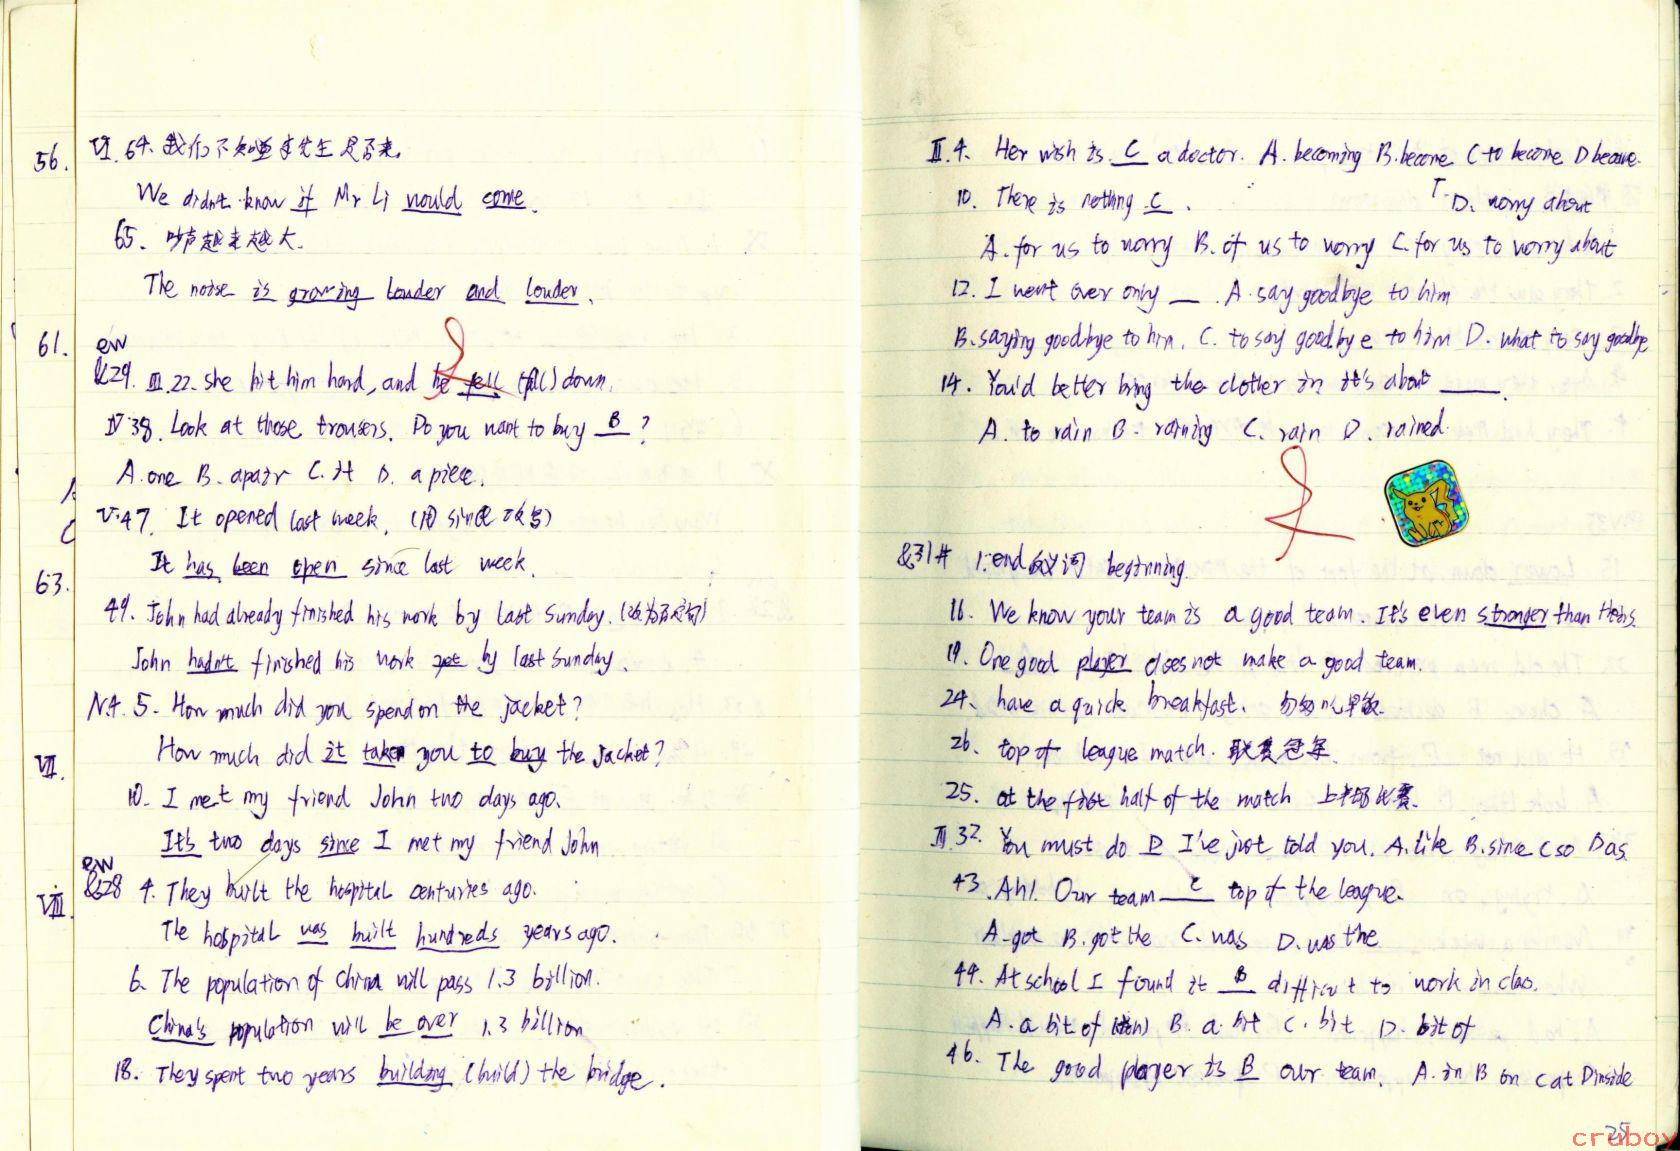 56.
VI. 64. 我们不知道李先生是否来。
We didn't know if Mr Li would come.
65. 吵声越来越大.
The noise is growing louder and louder.
61.
ew
&29. III.22. She hit him hard, and he fell (fall) down.
IV 38. Look at those trousers. Do you want to buy B ?
A. one B. apair C. it D. a piece.
V.47. It opened last week. (用 since 改写)
It has been open since last week.
63.
49. John had already finished his work by last Sunday. (改为否定句)
John hadn't finished his work yet by last Sunday.
N.4. 5. How much did you spend on the jacket?
How much did it take you to buy the jacket?
VII.
10. I met my friend John two days ago.
It's two days since I met my friend John
ew
&28 4. They built the hospital centuries ago.
VIII.
The hospital was built hundreds years ago.
6. The population of China will pass 1.3 billion.
China's population will be over 1.3 billion
18. They spent two years building (build) the bridge.
II.4. Her wish is C a doctor. A. becoming B. become C to become D became.
10. There is nothing C . D. worry about
A. for us to worry B. of us to worry C. for us to worry about
12. I went over only __ . A. say goodbye to him
B. saying goodbye to him. C. to say goodbye to him D. what to say goodbye
14. You'd better bring the clother in. it's about ____.
A. to rain B. raining C. rain D. rained.
&31# 1. end 反义词 beginning.
16. We know your team is a good team. It's even stronger than theirs.
19. One good player does not make a good team.
24. have a quick breakfast. 匆匆吃早饭.
26. top of league match. 联赛冠军.
25. at the first half of the match 上半场比赛.
III 32. You must do D I've just told you. A. like B. since C so D as.
43. Ah! Our team C top of the league.
A. got B. got the C. was D. was the
44. At school I found it B difficut to work in clas.
A. a bit of B. a bit C. bit D. bit of
46. The good player is B our team. A. in B on C at D inside
25
cruboy